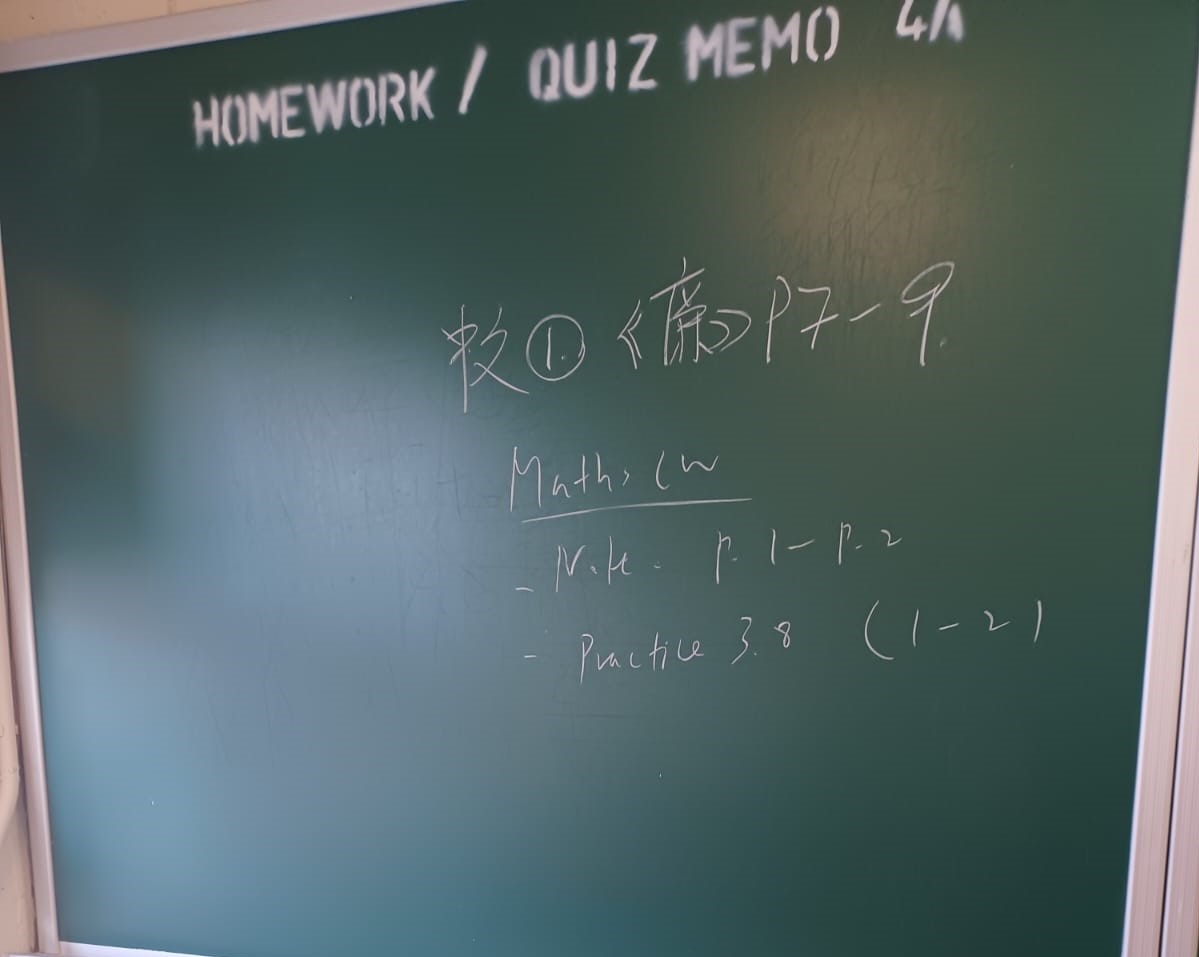 HOMEWORK / QUIZ MEMO 4A
① 《廉》P7-9
Maths CW
- Note. P.1-P.2
- Practice 3.8 (1-2)